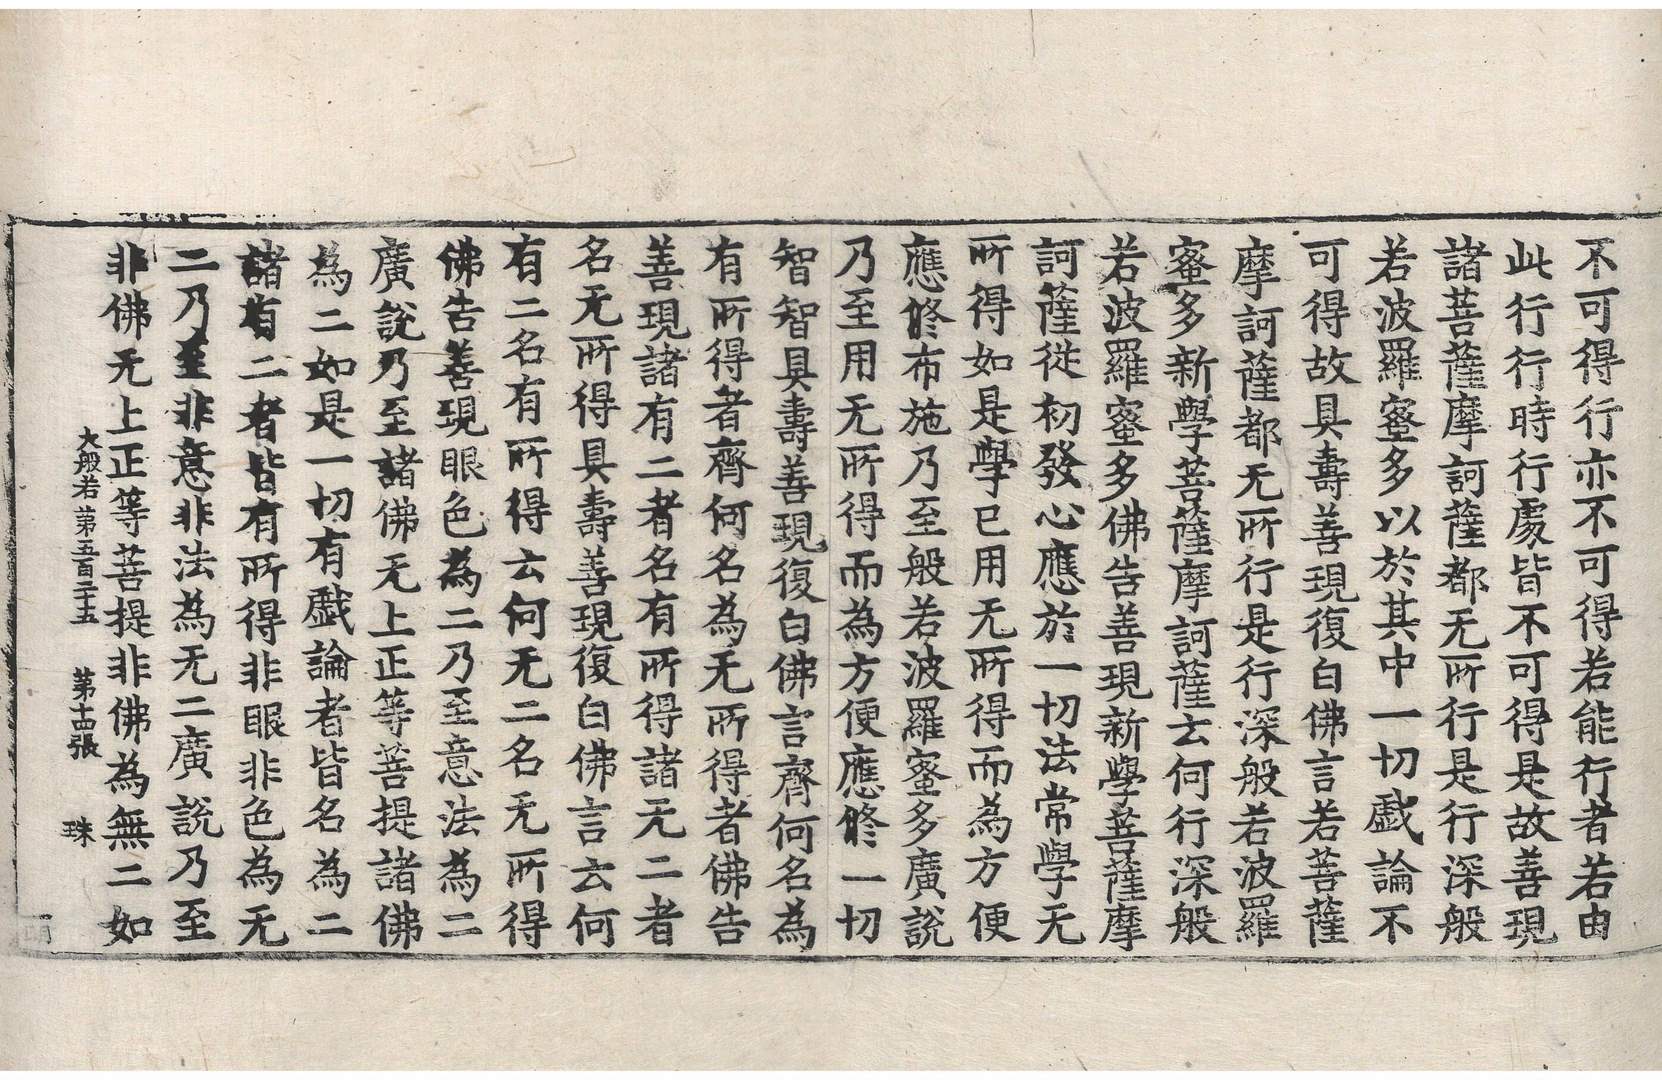 不可得行亦不可得若能行者若由
此行行時行處皆不可得是故善現
諸菩薩摩訶薩都无所行是行深般
若波羅蜜多以於其中一切戲論不
可得故具壽善現復白佛言若菩薩
摩訶薩都无所行是行深般若波羅
蜜多新學菩薩摩訶薩云何行深般
若波羅蜜多佛告善現新學菩薩摩
訶薩從初發心應於一切法常學无
所得如是學已用无所得而為方便
應修布施乃至般若波羅蜜多廣說
乃至用无所得而為方便應修一切
智智具壽善現復白佛言齊何名為
有所得者齊何名為无所得者佛告
善現諸有二者名有所得諸无二者
名无所得具壽善現復白佛言云何
有二名有所得云何无二名无所得
佛告善現眼色為二乃至意法為二
廣說乃至諸佛无上正等菩提諸佛
為二如是一切有戲論者皆名為二
諸有二者皆有所得非眼非色為无
二乃至非意非法為无二廣說乃至
非佛无上正等菩提非佛為無二如
大般若第五百二十五 第十四張 珠